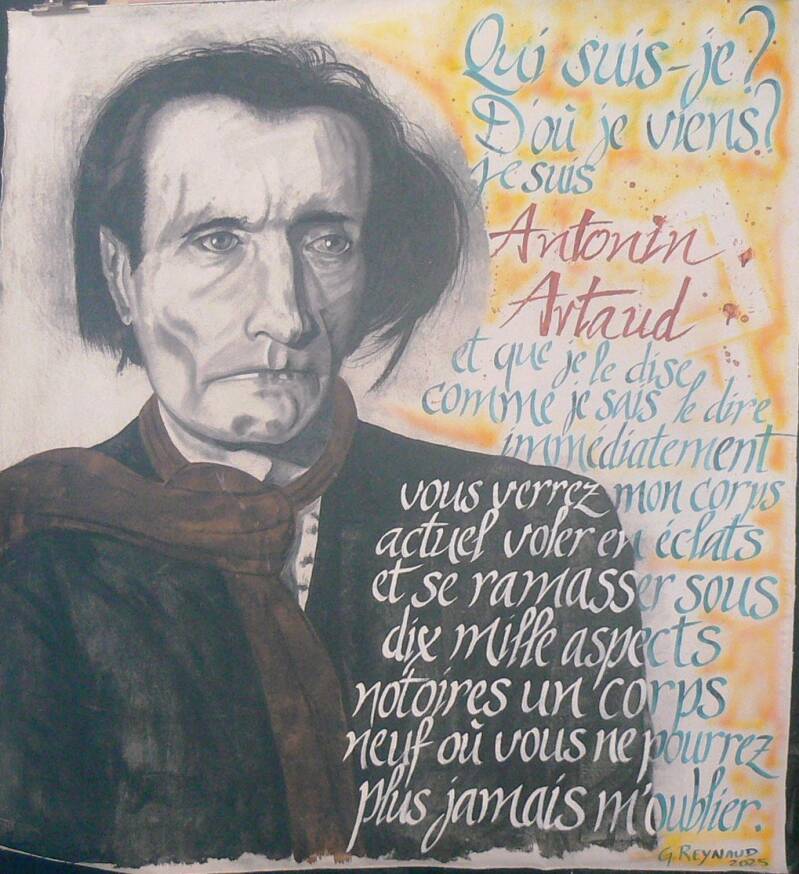 Qui suis-je?
D'où je viens?
je suis
Antonin
Artaud
et que je le dise
comme je sais le dire
immédiatement
vous verrez mon corps
actuel voler en éclats
et se ramasser sous
dix mille aspects
notoires un corps
neuf où vous ne pourrez
plus jamais m'oublier.
G. REYNAUD
2025